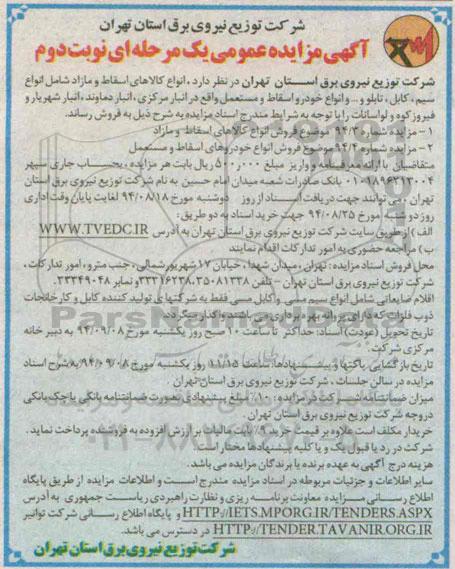 شرکت توزیع نیروی برق استان تهران
آگهی مزایده عمومی یک مرحله ای نوبت دوم
شرکت توزیع نیروی برق استان تهران در نظر دارد ، انواع کالاهای اسقاط و مازاد شامل انواع
سیم ، کابل ، تابلو و ... و انواع خودرو اسقاط و مستعمل واقع در انبار مرکزی ، انبار دماوند ، انبار شهریار و
فیروزکوه و لواسانات را با توجه به شرایط مندرج اسناد مزایده به شرح ذیل به فروش رساند.
۱ – مزایده شماره ۹۴/۳ موضوع فروش انواع کالاهای اسقاط و مازاد
۲ – مزایده شماره ۹۴/۴ موضوع فروش انواع خودروهای اسقاط و مستعمل
متقاضیان با ارائه معرفینامه و واریز مبلغ ۵۰۰,۰۰۰ ریال بابت هر مزایده ، بحساب جاری سپهر
بانک صادرات شعبه میدان امام حسین به نام شرکت توزیع نیروی برق استان
تهران ، می توانند جهت دریافت اسناد از روز دوشنبه مورخ ۹۴/۰۸/۱۸ لغایت پایان وقت اداری
روز دوشنبه مورخ ۹۴/۰۸/۲۵ جهت خرید اسناد به دو طریق :
الف ) از طریق سایت شرکت توزیع نیروی برق استان تهران به آدرس WWW.TVEDC.IR
ب ) مراجعه حضوری به امور تدارکات اقدام نمایند
محل فروش اسناد مزایده : تهران ، میدان شهدا ، خیابان ۱۷ شهریور شمالی ، جنب مترو ، امور تدارکات ،
شرکت توزیع نیروی برق استان تهران – تلفن ۳۵۰۸۱۳۳۸ ، ۳۳۳۱۶۲۳۸ و نمابر ۳۳۳۴۹۰۴۸ .
اقلام ضایعاتی شامل انواع سیم مسی و کابل مسی فقط به شرکتهای تولید کننده کابل و کارخانجات
ذوب فلزات که دارای پروانه بهره برداری می باشند واگذار میگردد.
تاریخ تحویل (عودت) اسناد: حداکثر تا ساعت ۱۰ صبح روز یکشنبه مورخ ۹۴/۰۹/۰۸ به دبیر خانه
مرکزی شرکت .
تاریخ بازگشایی پاکتها و پیشنهادها: ساعت ۱۱/۱۵ روز یکشنبه مورخ ۹۴/۰۹/۰۸ به شرح اسناد
مزایده در سالن جلسات ، شرکت توزیع نیروی برق استان تهران
میزان ضمانتنامه شرکت در مزایده : ۱۰٪ مبلغ پیشنهادی بصورت ضمانتنامه بانکی یا چک بانکی
در وجه شرکت توزیع نیروی برق استان تهران .
خریدار مکلف است علاوه بر قیمت خرید ۹٪ بابت مالیات بر ارزش افزوده به فروشنده پرداخت نماید .
شرکت در رد یا قبول یک و یا کلیه پیشنهادها مختار است .
هزینه درج آگهی به عهده برنده یا برندگان مزایده می باشد.
سایر اطلاعات و جزئیات مربوطه در اسناد مزایده مندرج است و اطلاعات مزایده از طریق پایگاه
اطلاع رسانی مزایده معاونت برنامه ریزی و نظارت راهبردی ریاست جمهوری به آدرس
HTTP://IETS.MPORG.IR/TENDERS.ASPX و پایگاه اطلاع رسانی شرکت توانیر
HTTP://TENDER.TAVANIR.ORG.IR در دسترس می باشد.
شرکت توزیع نیروی برق استان تهران